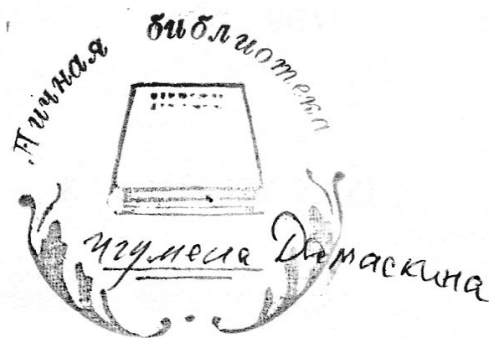 Личная библиотека
игумена Дамаскина